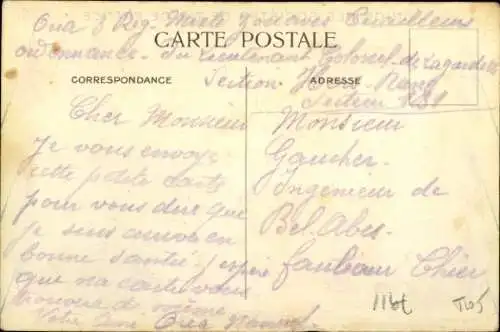 Oria 3 Reg. Mixte Zouaves Tirailleurs
ordennance du lieutenant Colonel de Lagarde
CARTE POSTALE
Section Hors-Rang
CORRESPONDANCE
ADRESSE
Secteur
Cher Monsieur
Je vous envoye
cette petite carte
pour vous dire que
je suis encore en
bonne santé j'espère
que ma carte vous
trouvera de même
Votre Oria
Monsieur
Gaucher
Ingenieur de
Bel. Abes
faubour Thier